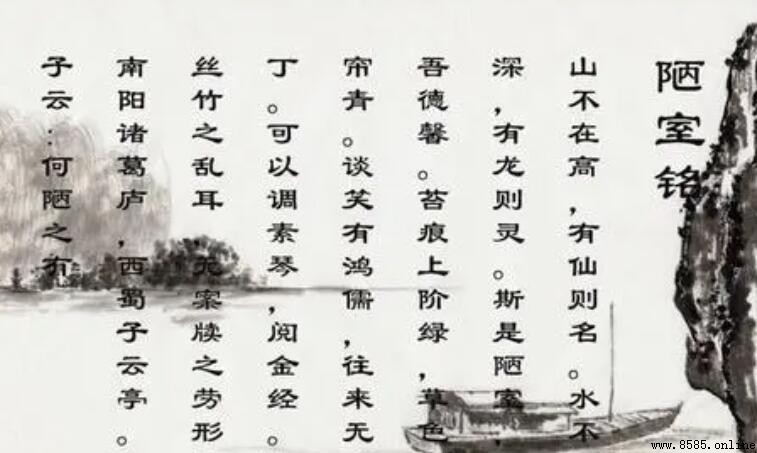 陋室铭
山不在高，有仙则名。水不
深，有龙则灵。斯是陋室，
吾德馨。苔痕上阶绿，草色
帘青。谈笑有鸿儒，往来无
丁。可以调素琴，阅金经。
丝竹之乱耳，无案牍之劳形
南阳诸葛庐，西蜀子云亭。
子云：何陋之有
www.8585.online